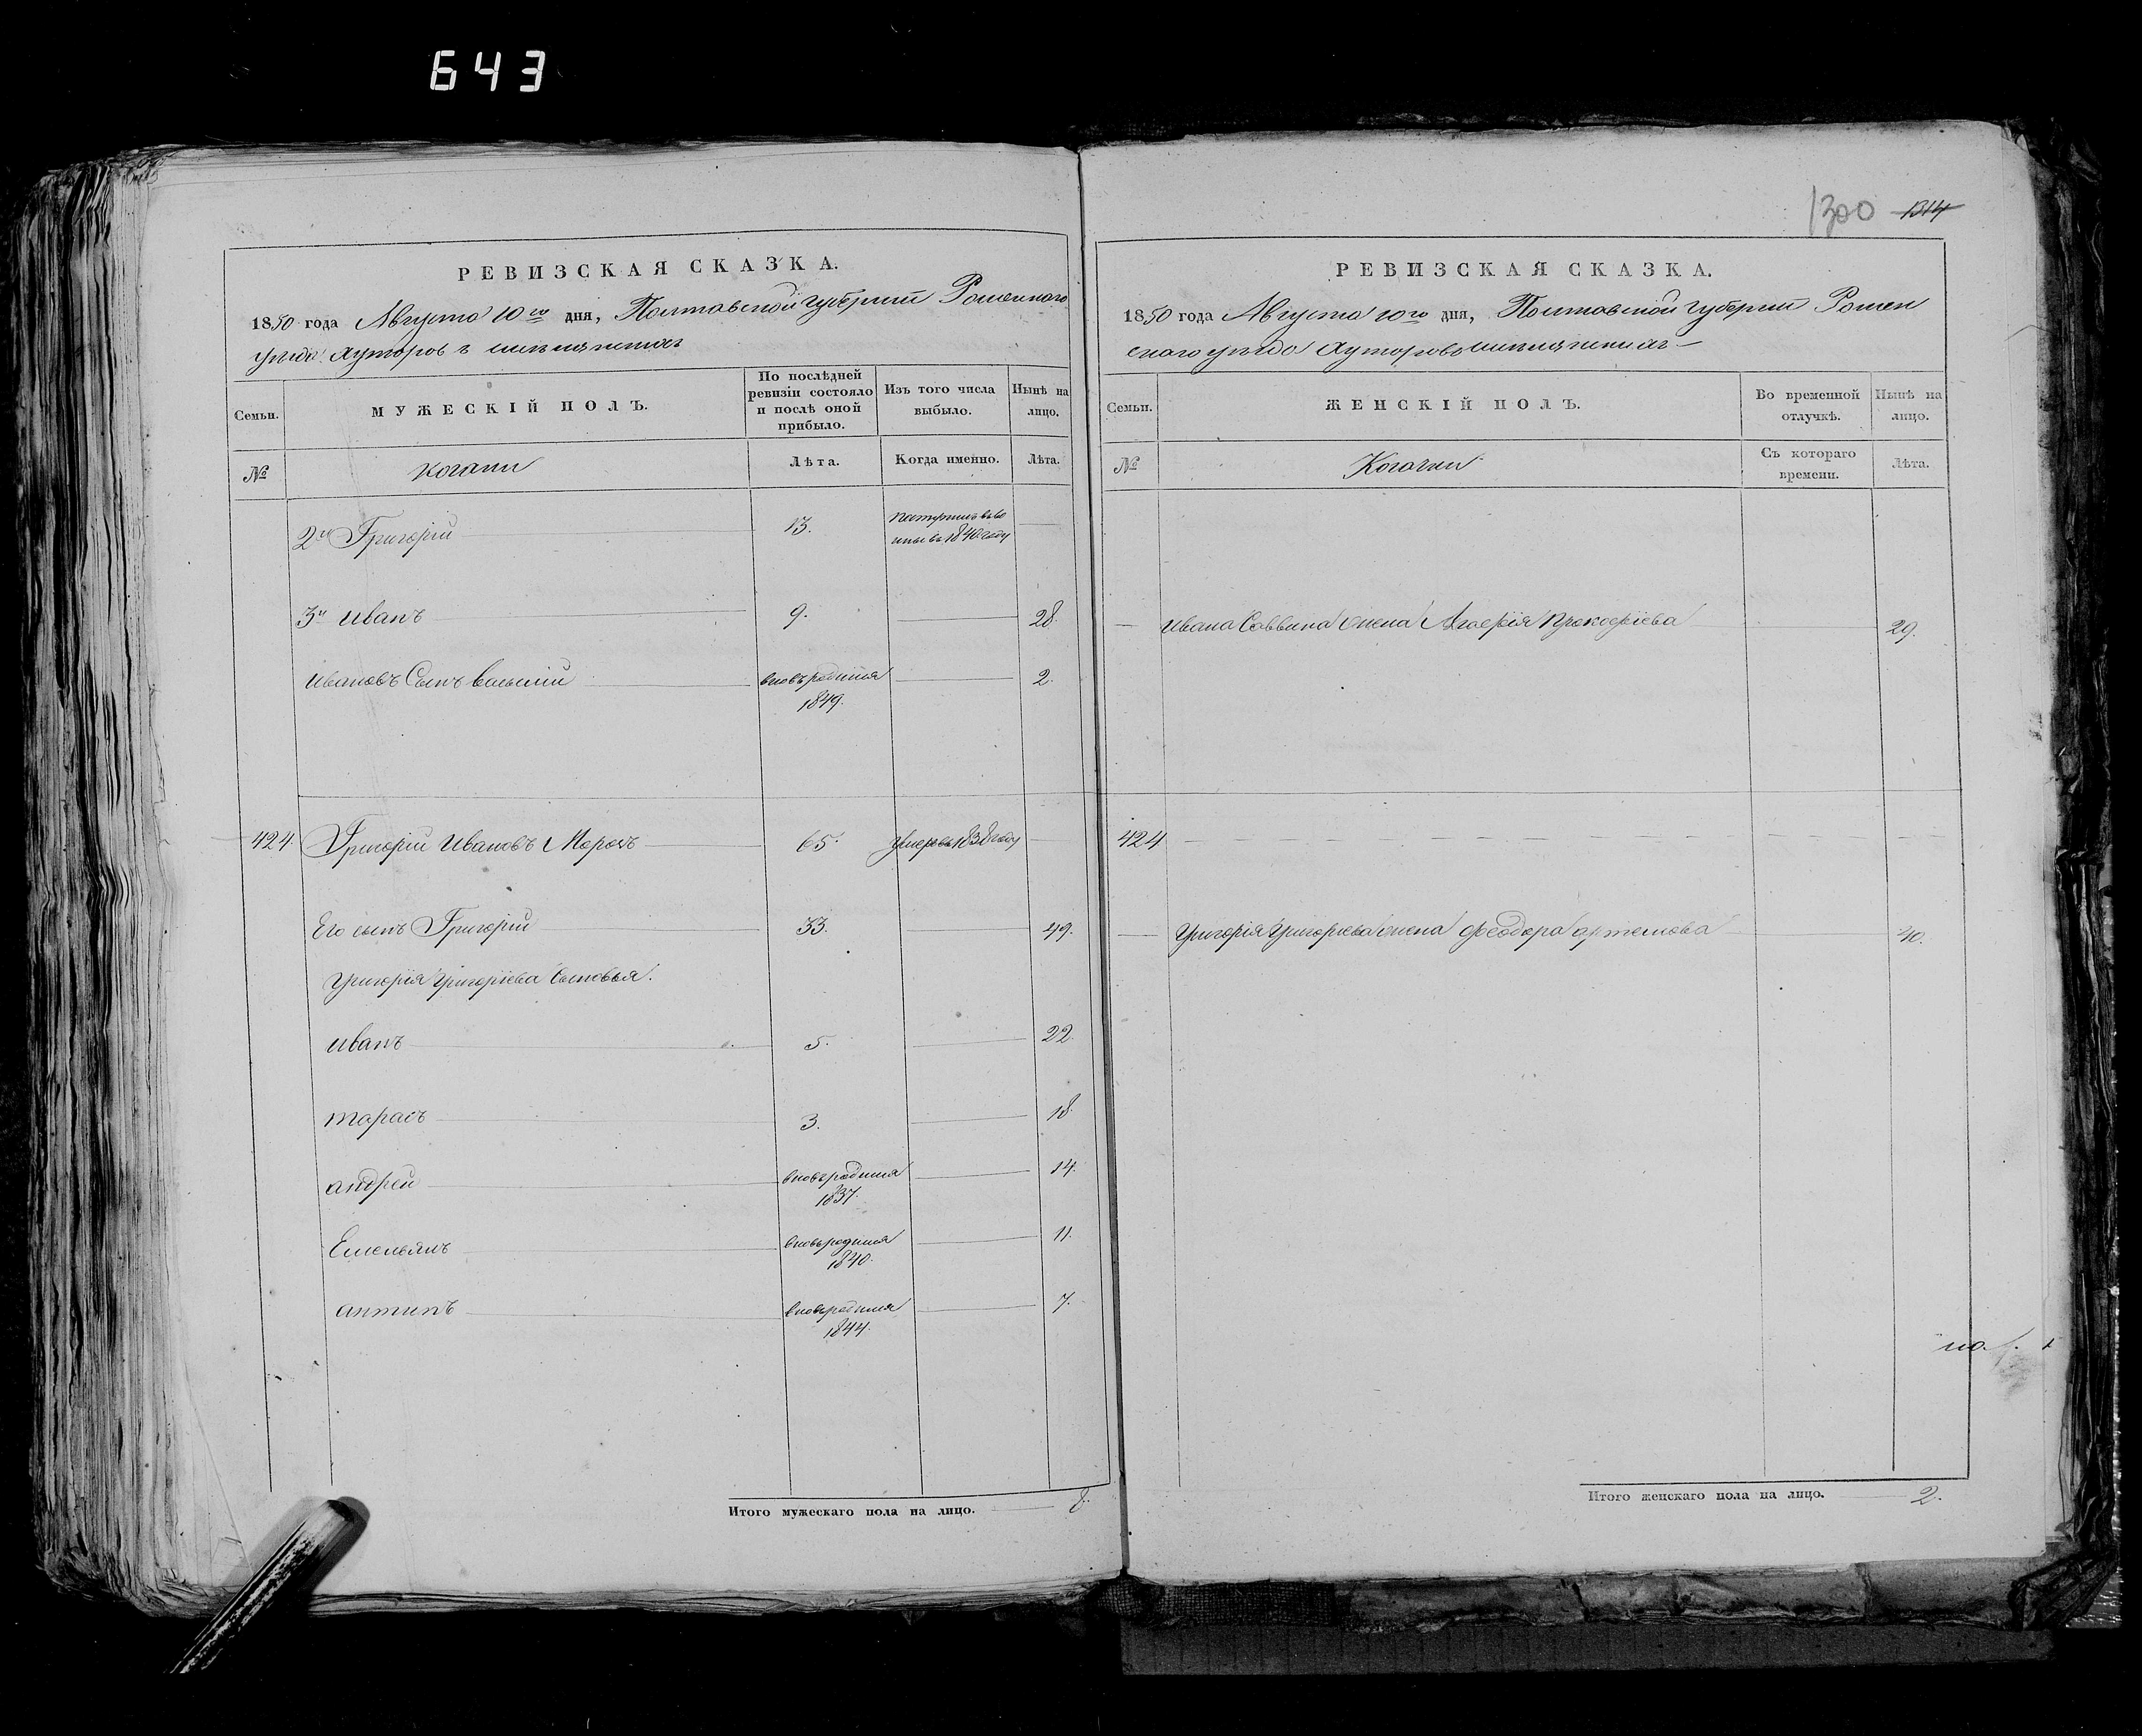 643
1300 1314
РЕВИЗСКАЯ СКАЗКА.
1850 года Августа 10го дня, Полтавской губерніи Роменнаго
уезда хуторовъ
Семьи.
МУЖЕСКІЙ ПОЛЪ.
По послѣдней ревизіи состояло и послѣ оной прибыло.
Изъ того числа выбыло.
Нынѣ на лицо.
№
козаки
Лѣта.
Когда именно.
Лѣта.
2й Григорій 13.
въ 1840 году
3й Иванъ 9. 28.
Ивановъ Сынъ василій вновьродился 2.
1849.
424. Григорій Ивановъ Морозъ 65. Умеръ въ 1838 году
Его сынъ Григорій 33. 49.
Григорія Григоріева Сыновья.
иванъ 5. 22
тарасъ 3. 18.
андрей вновьродился 14.
1837.
Емельянъ вновьродился 11.
1840.
антипъ вновьродился 7.
1844.
Итого мужескаго пола на лицо. 8.
РЕВИЗСКАЯ СКАЗКА.
1850 года Августа 10го дня, Полтавской губерніи Ромен
скаго уезда хуторовъ
Семьи.
ЖЕНСКІЙ ПОЛЪ.
Во временной отлучкѣ.
Нынѣ на лицо.
№
Козачки
Съ котораго времени.
Лѣта.
Ивана Саввина жена Агафія Прокофіева 29.
424
Григорія Григоріева жена феодора артемова 40.
Итого женскаго пола на лицо. 2.